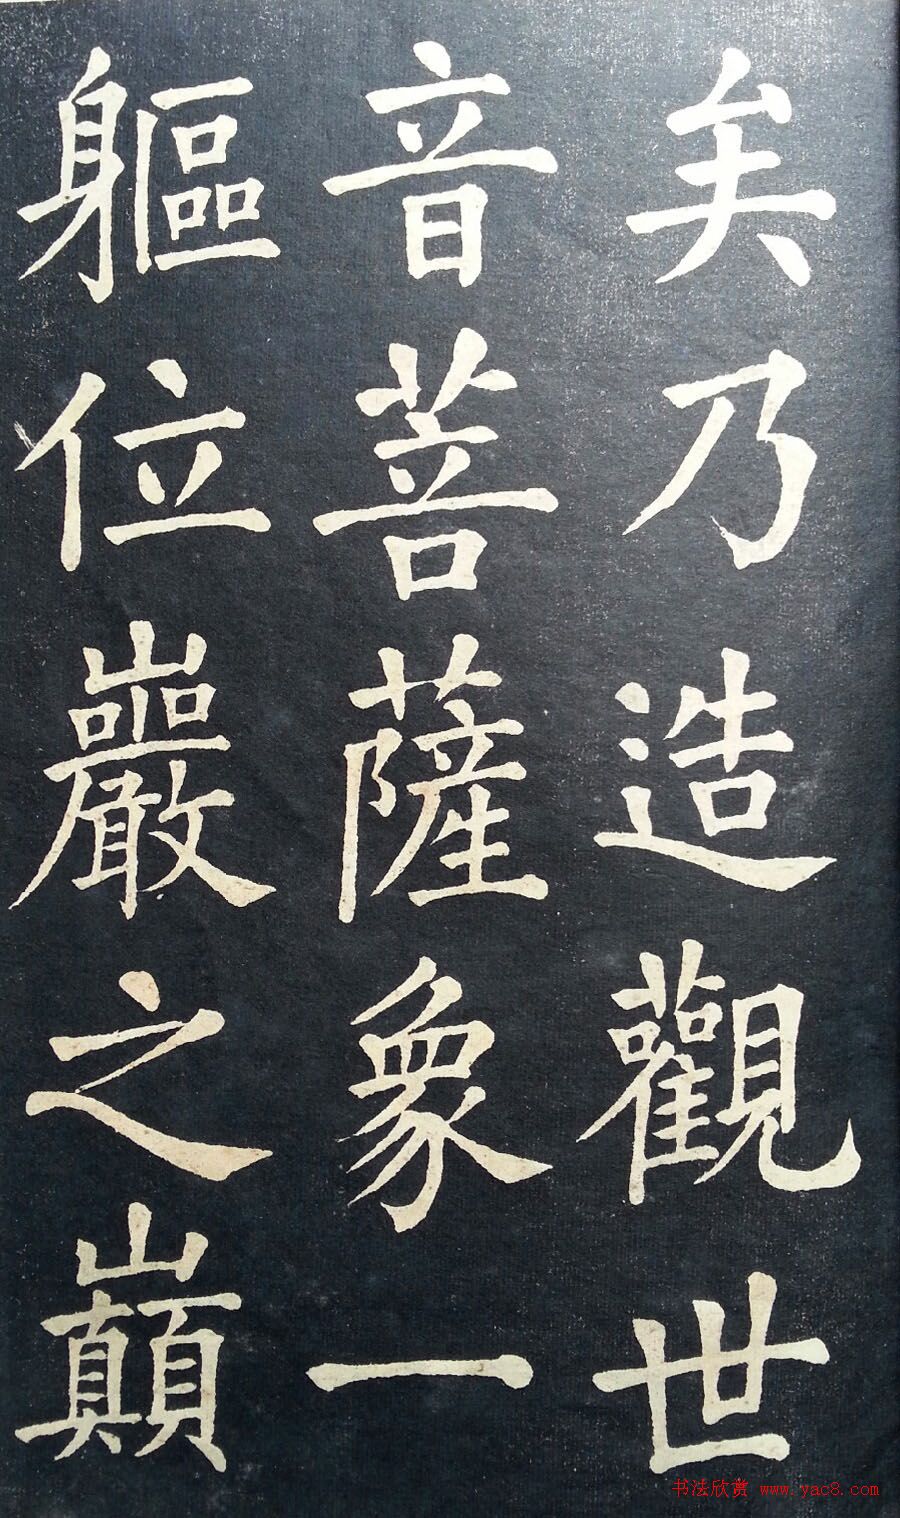 矣乃造觀世
音菩薩象一
軀位巖之巔
书法欣赏 www.yac8.com